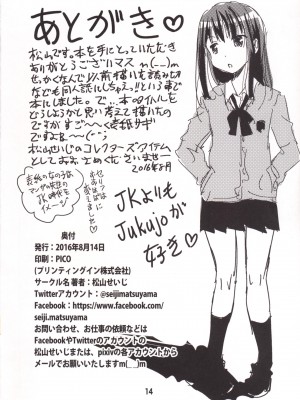 あとがき♡
松山です。本を手にとっていただき
ありがとうございマスm(__)m
せっかくなんで以前描いた読み切り
なども同人誌にしちゃえ!!という事で
本にしました。で、本のタイトルを
どうしようかと思い考えて描いたの
ですが
ですよね〜(^-^;
松山せいじのコレクターズアイテム
としておおさめくださいませ…
2016年8月
表紙のなの子は
JK時代を
イメージ
JKよりも
Jukujoが
好き♡
奥付
発行:2016年8月14日
印刷:PICO
(プリンティングイン株式会社)
サークル名 著者:松山せいじ
Twitterアカウント:@seijimatsuyama
Facebook:https://www.facebook.com/
seiji.matsuyama
お問い合わせ、お仕事の依頼などは
FacebookやTwitterのアカウントの
松山せいじまたは、pixivの各アカウントから
メールでお願いいたしますm[__]m
14